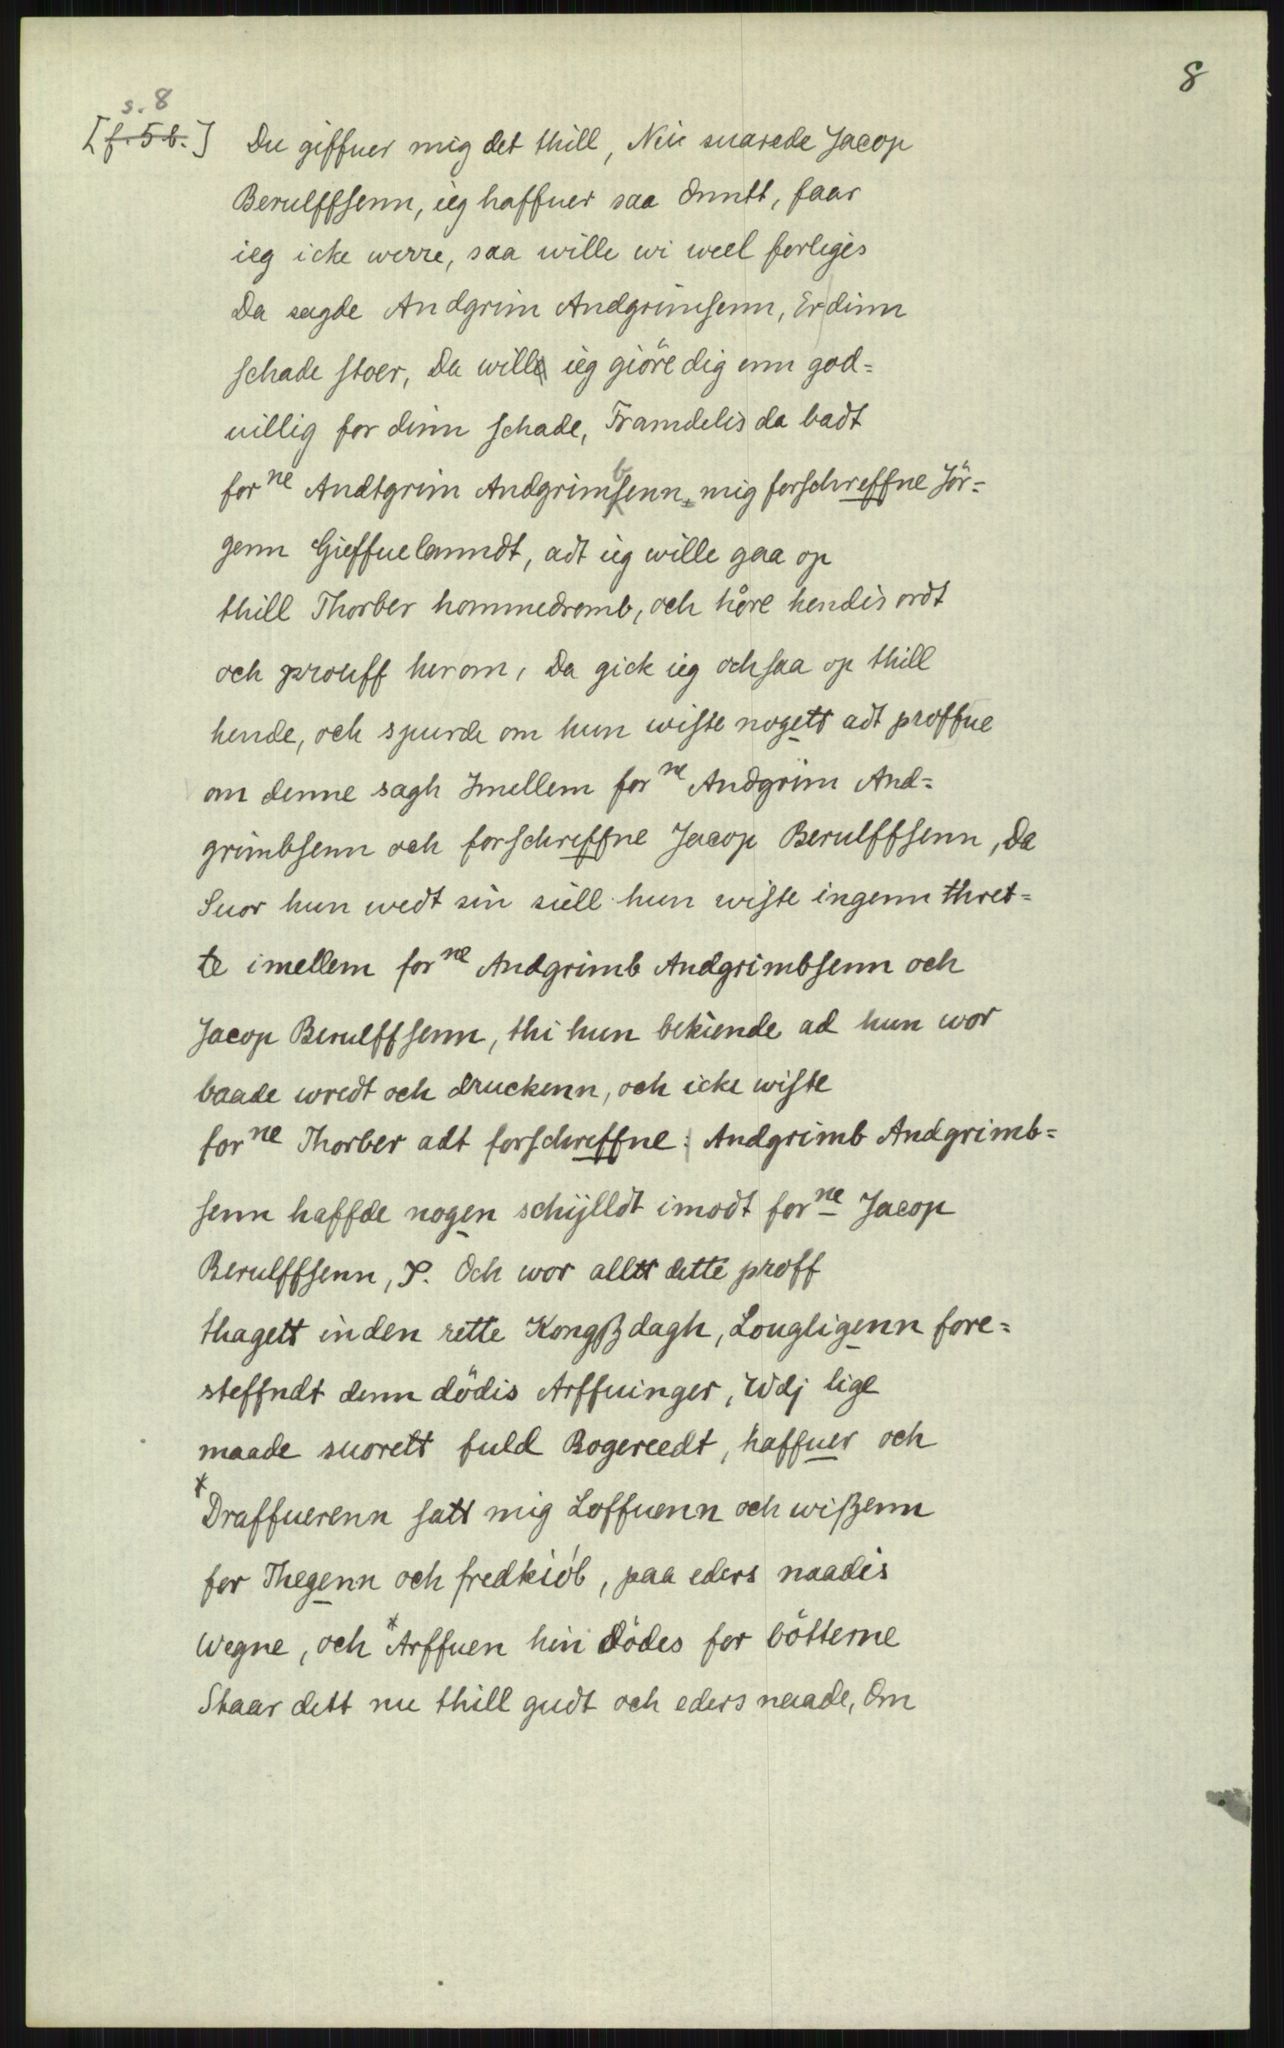 8
s. 8
[f. 5b.] Du giffuer mig det thill, Nei suarede Jacop
Berulffsenn, ieg haffuer saa onntt, faar
ieg icke werre, saa wille wi weel forliges
Da sagde Andgrim Andgrimsenn, Er dinn
schade stoer, Da will ieg giöre dig enn god=
uillig for dinn schade, Framdelis da badt
for ne Andtgrim Andgrimbsenn mig forschreffne Jör=
genn Gieffuelanndt, adt ieg wille gaa op
thill Thorber hommedromb, och höre hendis ordt
och prouff herom, Da gick ieg ochsaa op thill
hende, och spurde om hun wiste nogett adt proffue
om denne sagh Imellem for ne Andgrim And=
grimbsenn och forschreffne Jacop Berulffsenn, Da
Suor hun wedt sin siell hun wiste ingenn thret=
te imellem for ne Andgrimb Andgrimbsenn och
Jacop Berulffsenn, thi hun bekiende ad hun wor
baade wredt och druckenn, och icke wiste
for ne Thorber adt forschreffne Andgrimb Andgrimb=
senn haffde nogen schijlldt imodt for ne Jacop
Berulffsenn, P. Och wor alltt dette proff
thagett inden rette Kongßdagh, Lougligenn fore=
steffndt denn dödis Arffuinger, Wdj lige
maade suorett fuld Bogereedt, haffuer och
*Draffuerenn satt mig Loffuenn och wißenn
for Thegenn och fredkiöb, paa eders naadis
Wegne, och *Arffuen hin dödes for bötterne
Staar dett nu thill gudt och eders naade, Om